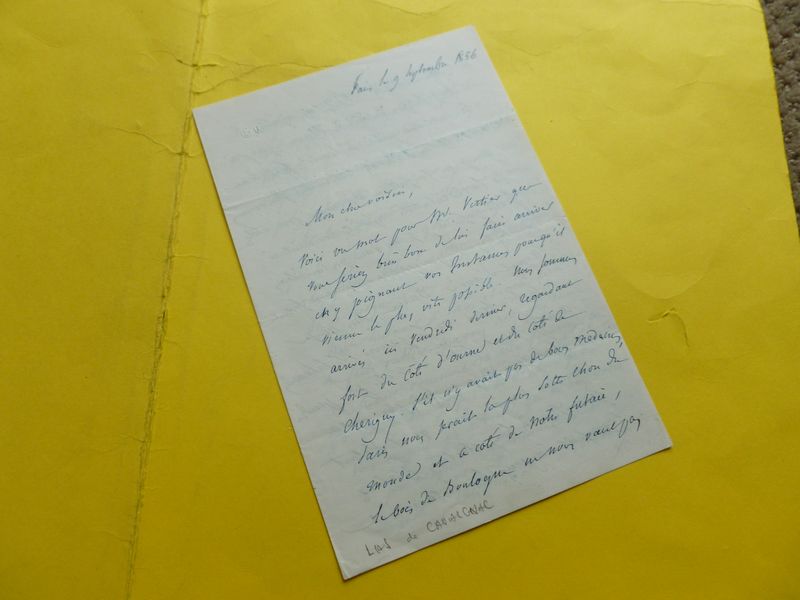 Paris le 9 septembre 1856
Mon cher voisin,
Voici un mot pour Mr. Vertier que
vous seriez bien bon de lui faire arriver
en y joignant vos Instances pour qu'il
vienne le plus vite possible. Nous sommes
arrivés ici vendredi dernier, regardant
fort du côté d'ourne et du côté de
Cherigny. S'il n'y avait pas de bons médecins,
Paris nous serait la plus sotte chose du
monde et a coté de notre futaie,
le bois de Boulogne ne nous vaut pas
LAS de CAVAIGNAC